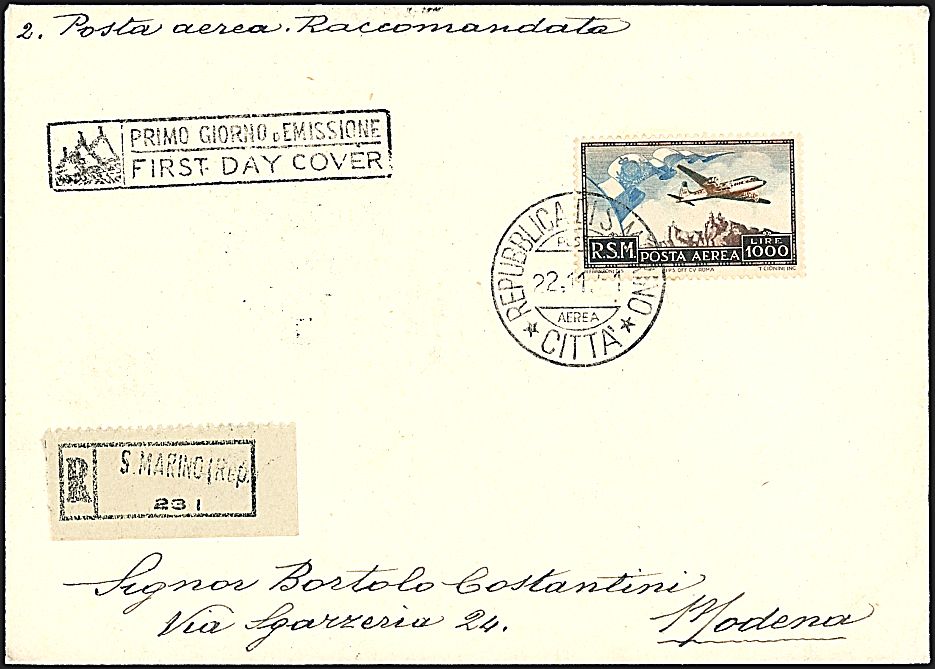 2. Posta aerea. Raccomandata
PRIMO GIORNO D'EMISSIONE
FIRST DAY COVER
R.S.M. POSTA AEREA LIRE 1000
OFF CV ROMA
T CIONINI INC
REPUBBLICA DI S. MARINO
22.11.51
AEREA
CITTA'
R
S. MARINO (Rep.
231
Signor Bortolo Costantini
Via Sgarzeria 24.
Modena